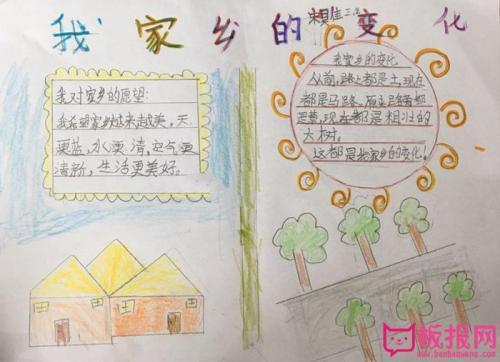 我家乡的变化
三
我对家乡的愿望:
我希望家乡越来越美,天
更蓝,水更清,空气更
清新,生活更美好。
我家乡的变化
从前,路上都是土,现在
都是马路。
现在都是粗壮的
大树。
这都是我家乡的变化!
板报网
www.banbaowang.com